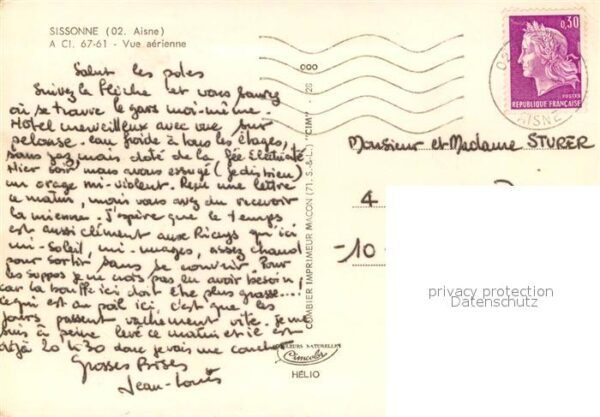 SISSONNE (02. Aisne)
A CI. 67-61 - Vue aérienne
Salut les potes
Suivez la flèche et vous saurez
où se trouve le gars moi-même.
Hôtel merveilleux avec vue sur
pelouse. eau froide à tous les étages,
sans gaz mais doté de la fée Eléctricité
Hier soir nous avons essuyé (je dis bien)
un orage mi-violent. Reçu une lettre
ce matin, mais vous avez du recevoir
la mienne. J'espère que le temps
est aussi clément aux Riceys qu'ici
mi-soleil mi-nuages, assez chaud
pour sortir sans se couvrir. Pour
les suppos je ne crois pas en avoir besoin,
car la bouffe ici doit être plus grasse...
ce qui est au poil ici, c'est que les
jours passent vachement vite. je me
suis à peine levé ce matin et il est
déjà 20h30 donc je vais me coucher
Grosses Bises
Jean-Louis
COMBIER IMPRIMEUR MACON (71. S.-&-L.) "CIM"
COULEURS NATURELLES
Cimcolor
HÉLIO
0,30
POSTES
RÉPUBLIQUE FRANÇAISE
02
AISNE
Monsieur et Madame STURER
4
-10-
privacy protection
Datenschutz